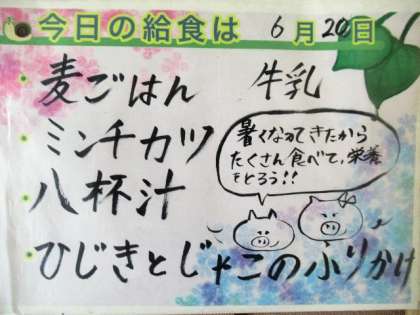 今日の給食は 6月20日
麦ごはん 牛乳
ミンチカツ
八杯汁
ひじきとじゃこのふりかけ
暑くなってきたから
たくさん食べて、栄養
をとろう!!